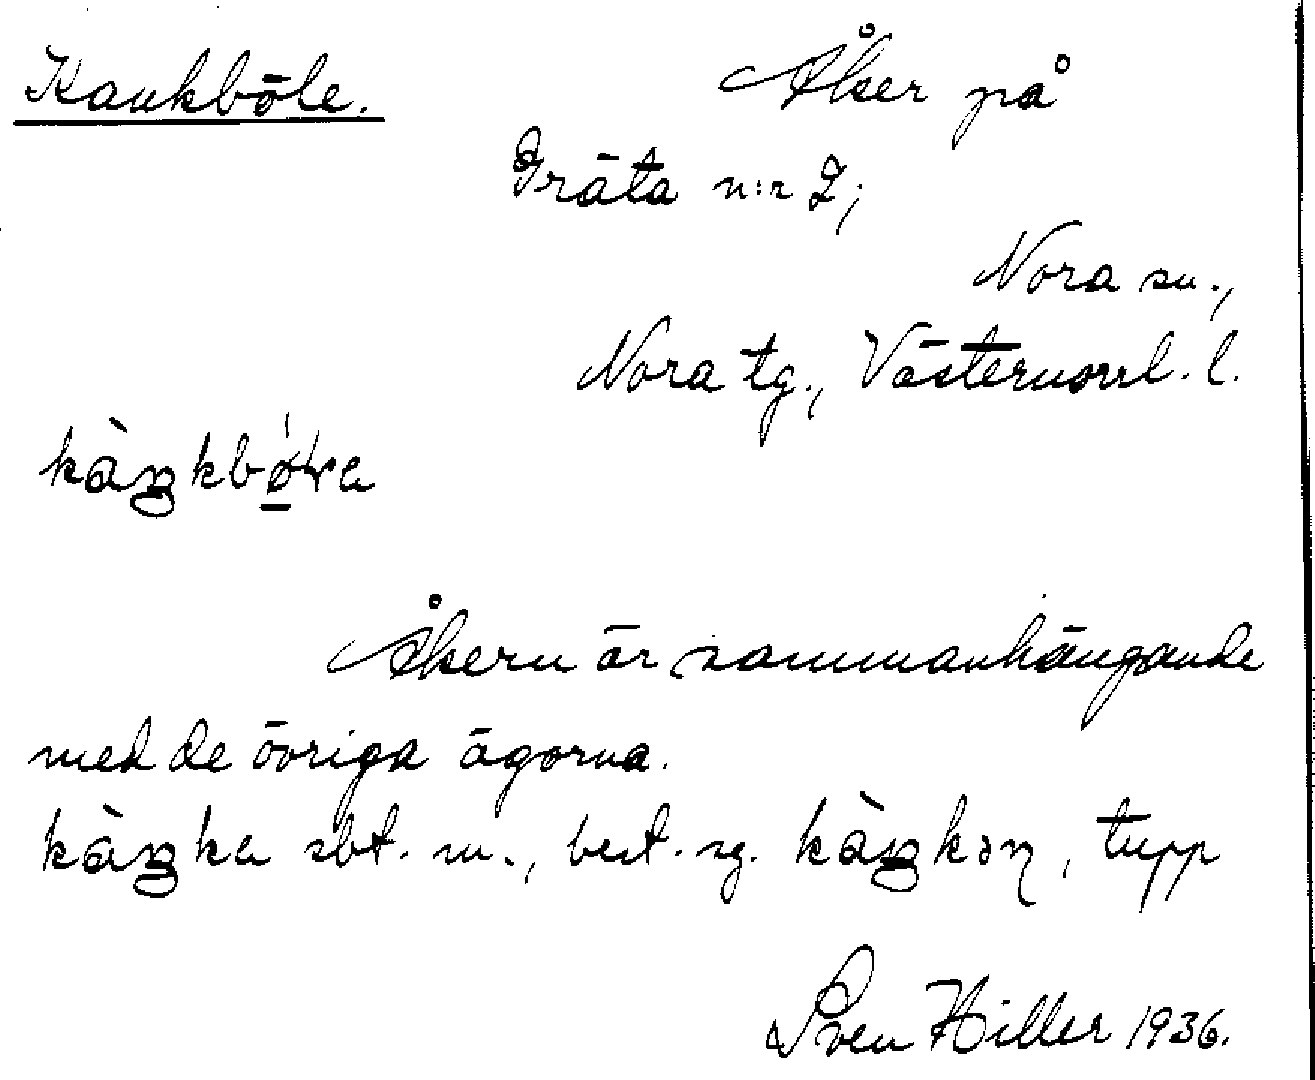 Kankböle.
Åker på
Gräta n:r 2;
Nora sn.,
Nora tg., Västernorrl. l.
Åkern är sammanhängande
med de övriga ägorna.
sbt. m., best. sg. , tupp
Sven Hiller 1936.